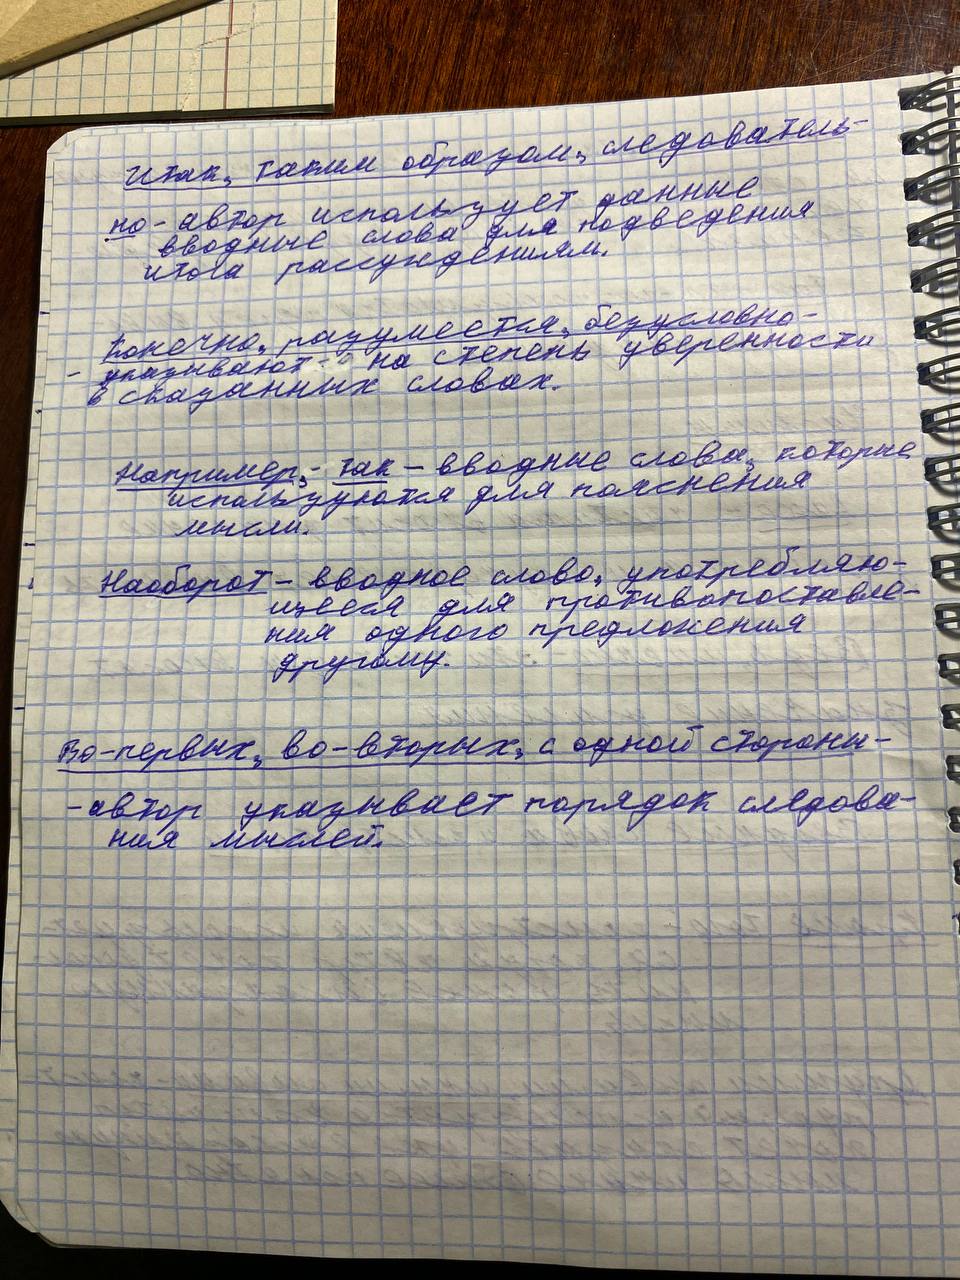 Итак, таким образом, следователь-
но - автор использует данные
вводные слова для подведения
итога рассуждениям.
Конечно, разумеется, безусловно -
- указывают на степень уверенности
в сказанных словах.
Например, - так - вводные слова, которые
используются для пояснения
мысли.
Наоборот - вводное слово, употребляю-
щееся для противопоставле-
ния одного предложения
другому.
Во-первых, во-вторых, с одной стороны -
- автор указывает порядок следова-
ния мыслей.